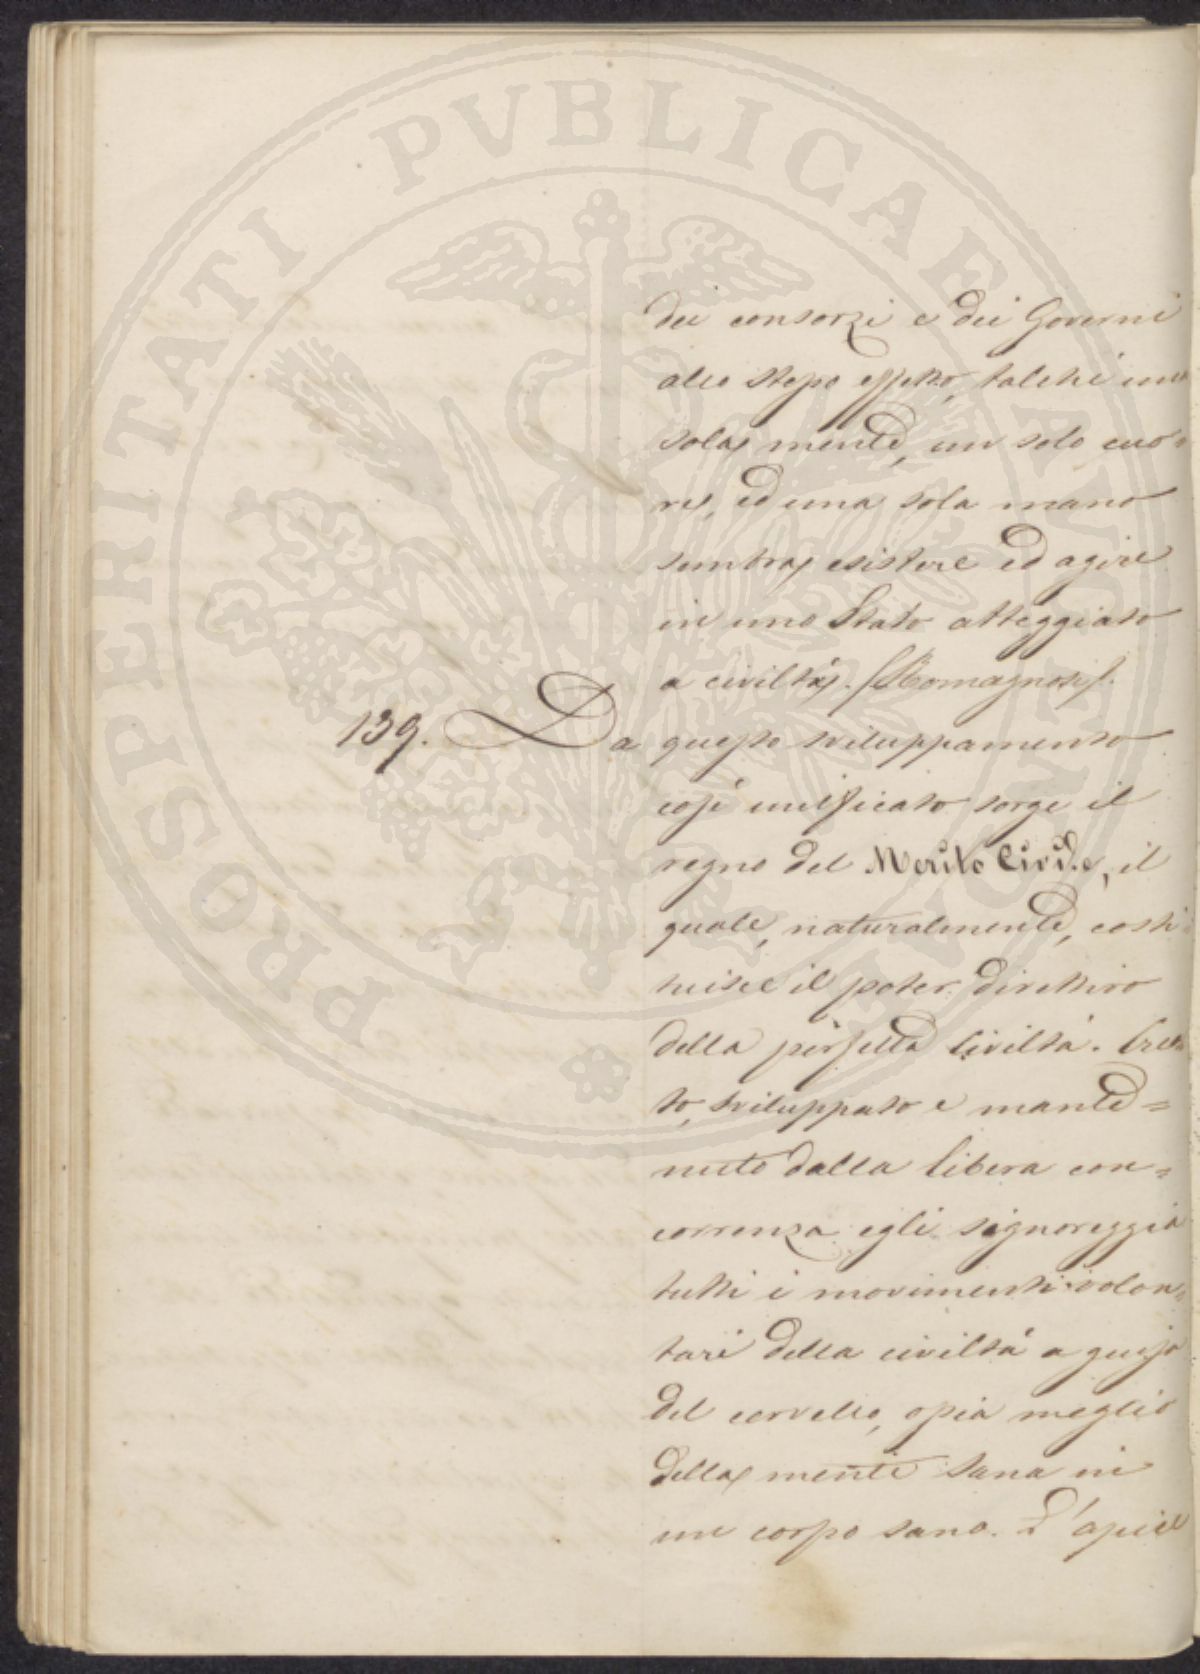 dei consorzi e dei Governi
allo stesso effetto, talchè una
sola mente, un solo cuo=
re, ed una sola mano
sembra esistere ed agire
in uno Stato atteggiato
a civiltà. (Romagnosi).
139. Da questo sviluppamento
così unificato sorge il
regno del Merito Civile, il
quale, naturalmente, costi=
tuisce il poter direttivo
della perfetta Civiltà. Crea=
to, sviluppato e mante=
nuto dalla libera con=
correnza egli signoreggia
tutti i movimenti volon=
tari della civiltà a guisa
del cervello, ossia meglio
della mente sana in
un corpo sano. L'apice
PROSPERITATI PVBLICAE AVGENDAE